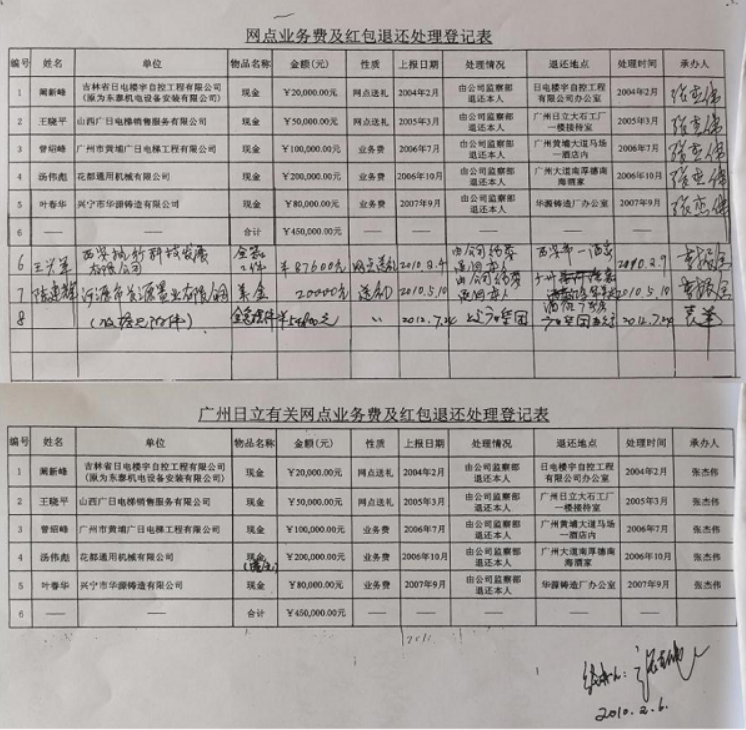 网点业务费及红包退还处理登记表
编号 姓名 单位 物品名称 金额(元) 性质 上报日期 处理情况 退还地点 处理时间 承办人
1 阚新峰 吉林省日电楼宇自控工程有限公司(原为东泰机电设备安装有限公司) 现金 ￥20,000.00元 网点送礼 2004年2月 由公司监察部退还本人 日电楼宇自控工程有限公司办公室 2004年2月 张杰伟
2 王晓平 山西广日电梯销售服务有限公司 现金 ￥50,000.00元 网点送礼 2005年3月 由公司监察部退还本人 广州日立大石工厂一楼接待室 2005年3月 张杰伟
3 曾绍峰 广州市黄埔广日电梯工程有限公司 现金 ￥100,000.00元 业务费 2006年7月 由公司监察部退还本人 广州黄埔大道马场一酒店内 2006年7月 张杰伟
4 汤伟彪 花都通用机械有限公司 现金 ￥200,000.00元 业务费 2006年10月 由公司监察部退还本人 广州大道南厚德南海酒家 2006年10月 张杰伟
5 叶春华 兴宁市华源铸造有限公司 现金 ￥80,000.00元 业务费 2007年9月 由公司监察部退还本人 华源铸造厂办公室 2007年9月 张杰伟
6 —— —— 合计 ￥450,000.00元 —— —— —— —— ——
6 王兴军 科技发展有限公司 2件 ￥87600元 网点送礼 2010.2.4 退回本人 西安市一酒家 2010.2.9
7 陈建辉 河源市置业有限公司 美金 20000元 送礼 2010.5.10 退回本人 2010.5.10
8 2012.7.24 2012.7.24
广州日立有关网点业务费及红包退还处理登记表
编号 姓名 单位 物品名称 金额(元) 性质 上报日期 处理情况 退还地点 处理时间 承办人
1 阚新峰 吉林省日电楼宇自控工程有限公司(原为东泰机电设备安装有限公司) 现金 ￥20,000.00元 网点送礼 2004年2月 由公司监察部退还本人 日电楼宇自控工程有限公司办公室 2004年2月 张杰伟
2 王晓平 山西广日电梯销售服务有限公司 现金 ￥50,000.00元 网点送礼 2005年3月 由公司监察部退还本人 广州日立大石工厂一楼接待室 2005年3月 张杰伟
3 曾绍峰 广州市黄埔广日电梯工程有限公司 现金 ￥100,000.00元 业务费 2006年7月 由公司监察部退还本人 广州黄埔大道马场一酒店内 2006年7月 张杰伟
4 汤伟彪 花都通用机械有限公司 现金 ￥200,000.00元 业务费 2006年10月 由公司监察部退还本人 广州大道南厚德南海酒家 2006年10月 张杰伟
5 叶春华 兴宁市华源铸造有限公司 现金 ￥80,000.00元 业务费 2007年9月 由公司监察部退还本人 华源铸造厂办公室 2007年9月 张杰伟
6 —— —— 合计 ￥450,000.00元 —— —— —— —— ——
张杰伟
2010.2.6.